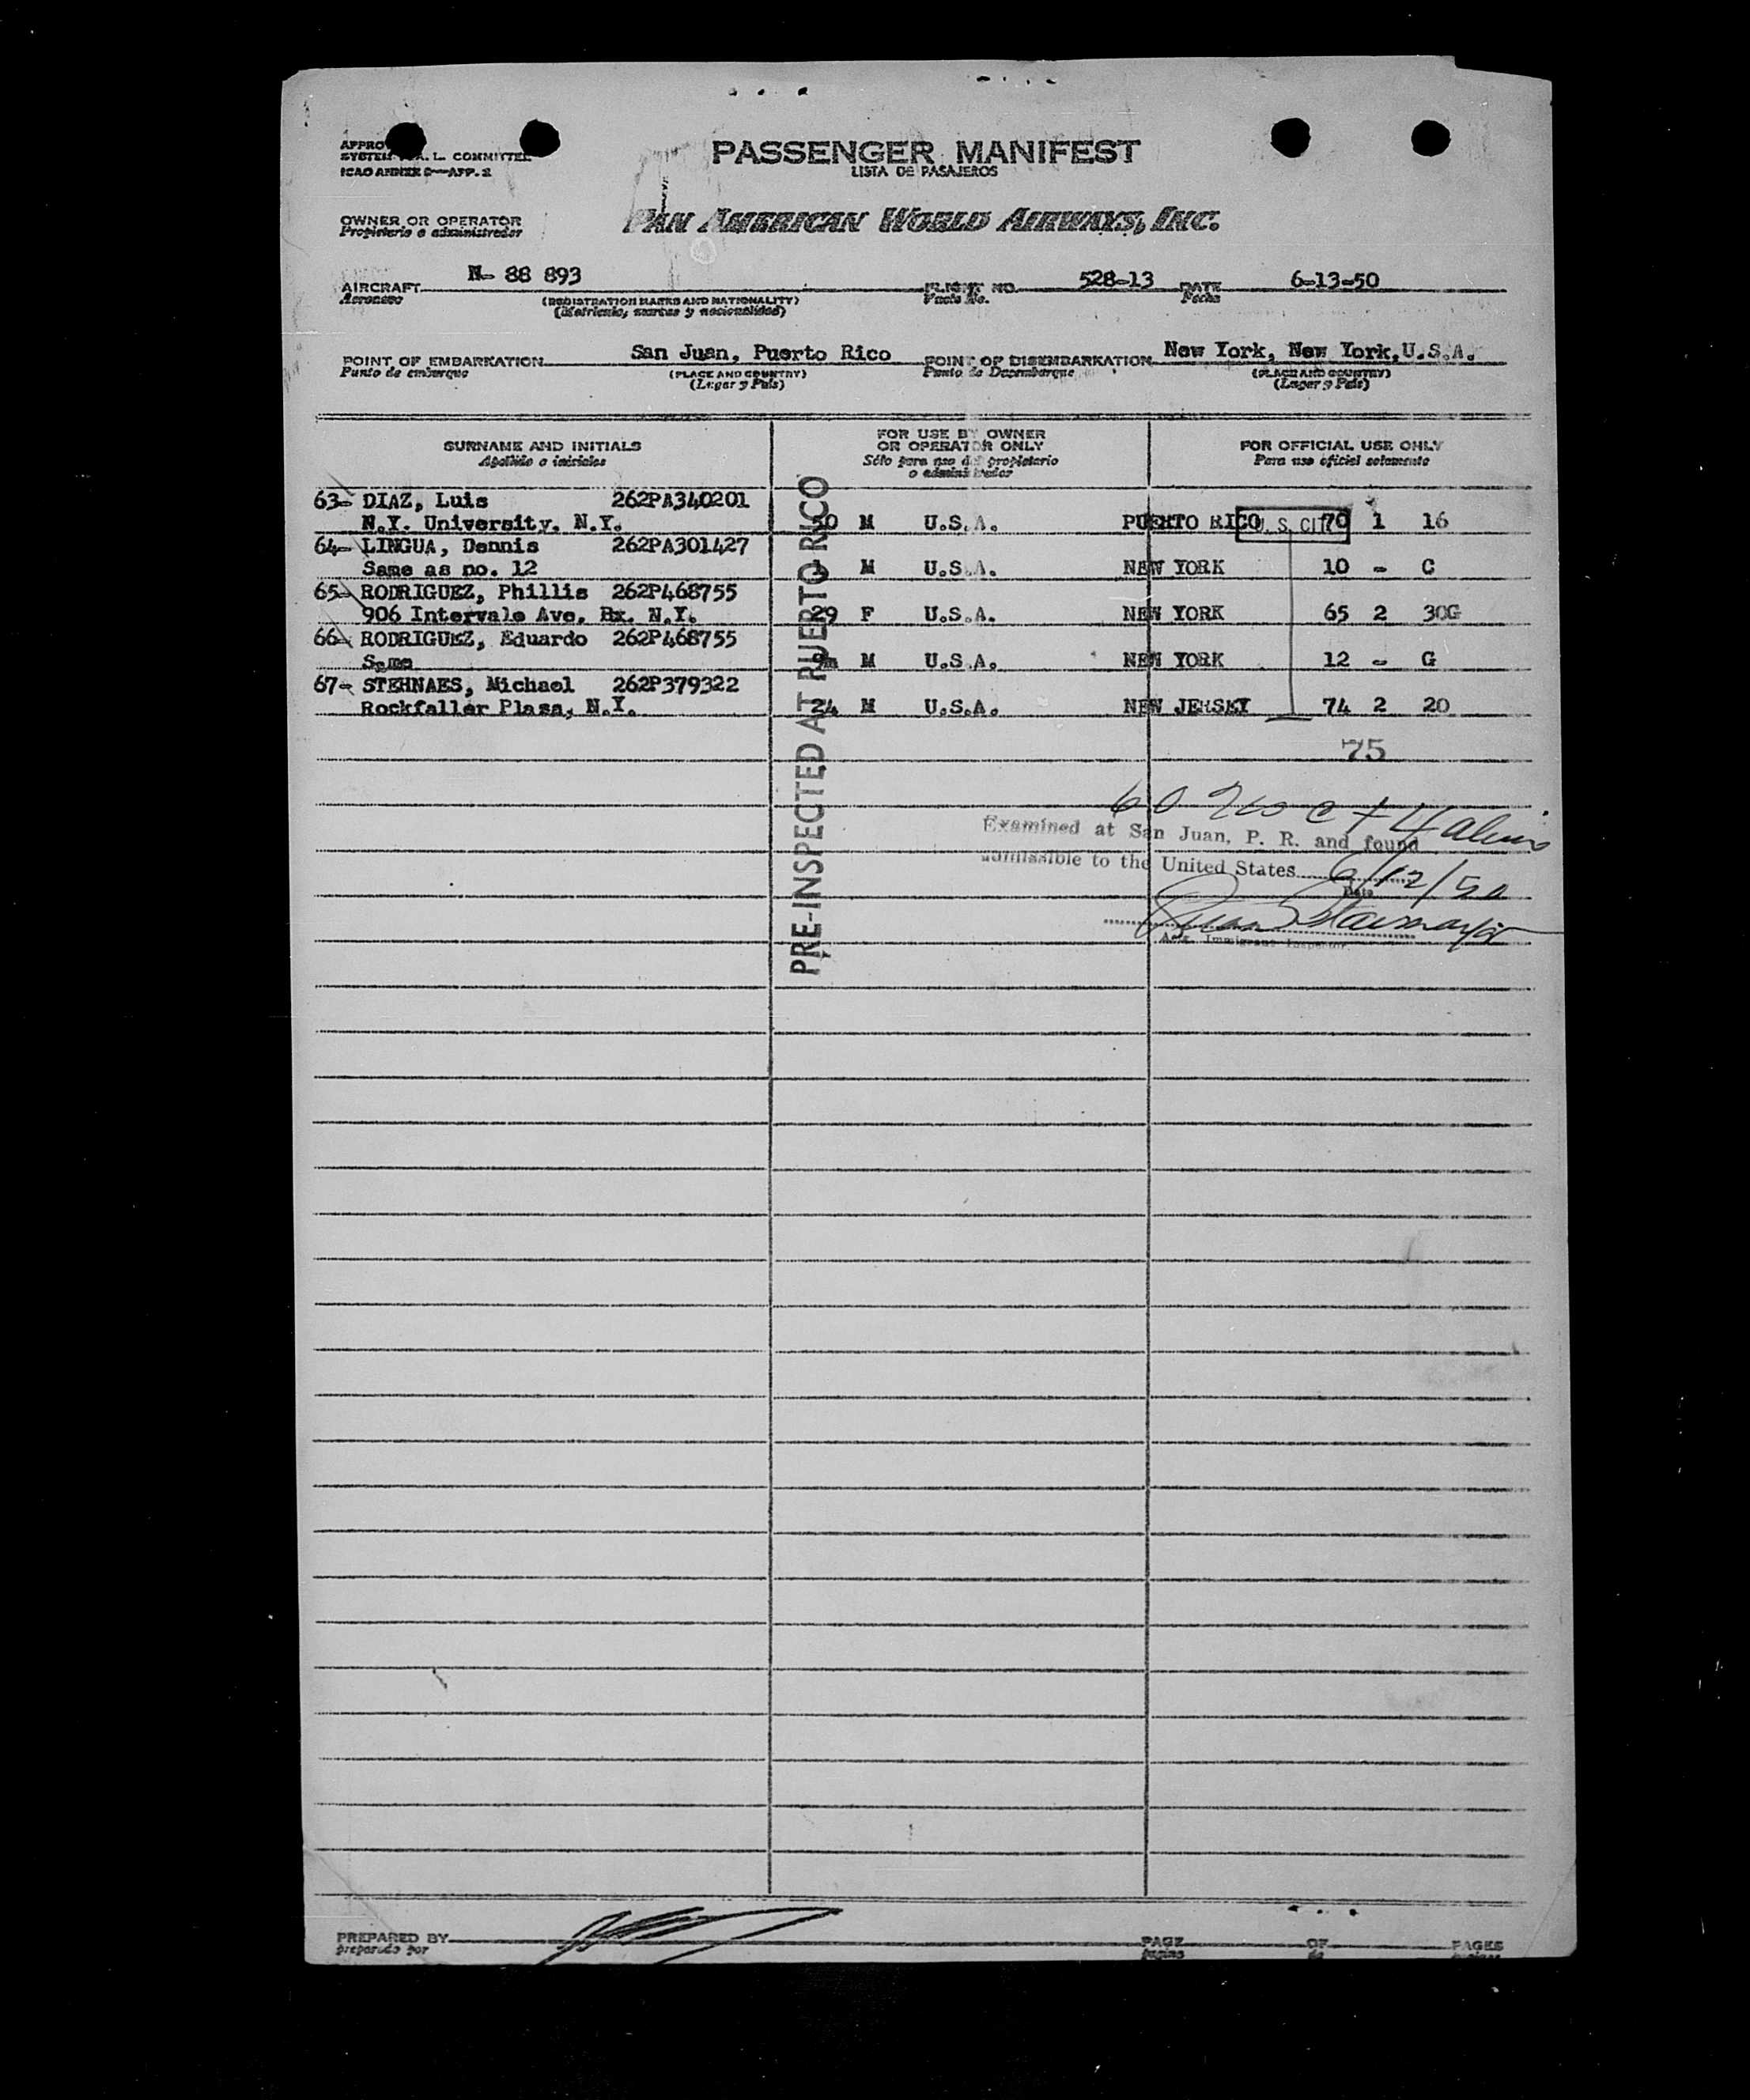 PASSENGER MANIFEST
LISTA DE PASAJEROS
SYSTEM A. L. COMMITTEE
ICAO ANNEX 9—APP. 2
OWNER OR OPERATOR
Propietario o administrador
PAN AMERICAN WORLD AIRWAYS, INC.
AIRCRAFT N- 88 893 FLIGHT NO. 528-13 DATE 6-13-50
Aeronave (REGISTRATION MARKS AND NATIONALITY) Vuelo No. Fecha
(Matricula, marcas y nacionalidad)
POINT OF EMBARKATION San Juan, Puerto Rico POINT OF DISEMBARKATION New York, New York,U.S.A.
Punto de embarque (PLACE AND COUNTRY) Punto de Desembarque (PLACE AND COUNTRY)
(Lugar y País) (Lugar y País)
SURNAME AND INITIALS FOR USE BY OWNER OR OPERATOR ONLY FOR OFFICIAL USE ONLY
Apellido e iniciales Sólo para uso del propietario o administrador Para uso oficial solamente
63- DIAZ, Luis 262PA340201
N.Y. University, N.Y. 50 M U.S.A. PUERTO RICO U. S. CIT. 70 1 16
64- LINGUA, Dennis 262PA301427
Same as no. 12 M U.S.A. NEW YORK 10 - C
65- RODRIGUEZ, Phillis 262P468755
906 Intervale Ave. Bx. N.Y. 29 F U.S.A. NEW YORK 65 2 30G
66- RODRIGUEZ, Eduardo 262P468755
Same M U.S.A. NEW YORK 12 - G
67- STEHNAES, Michael 262P379322
Rockfaller Plasa, N.Y. 24 M U.S.A. NEW JERSEY 74 2 20
75
PRE-INSPECTED AT PUERTO RICO
60 + 4 aliens
Examined at San Juan, P. R. and found
admissible to the United States 6/12/50
Date
Immigrant Inspector
PREPARED BY PAGE OF PAGES
preparado por